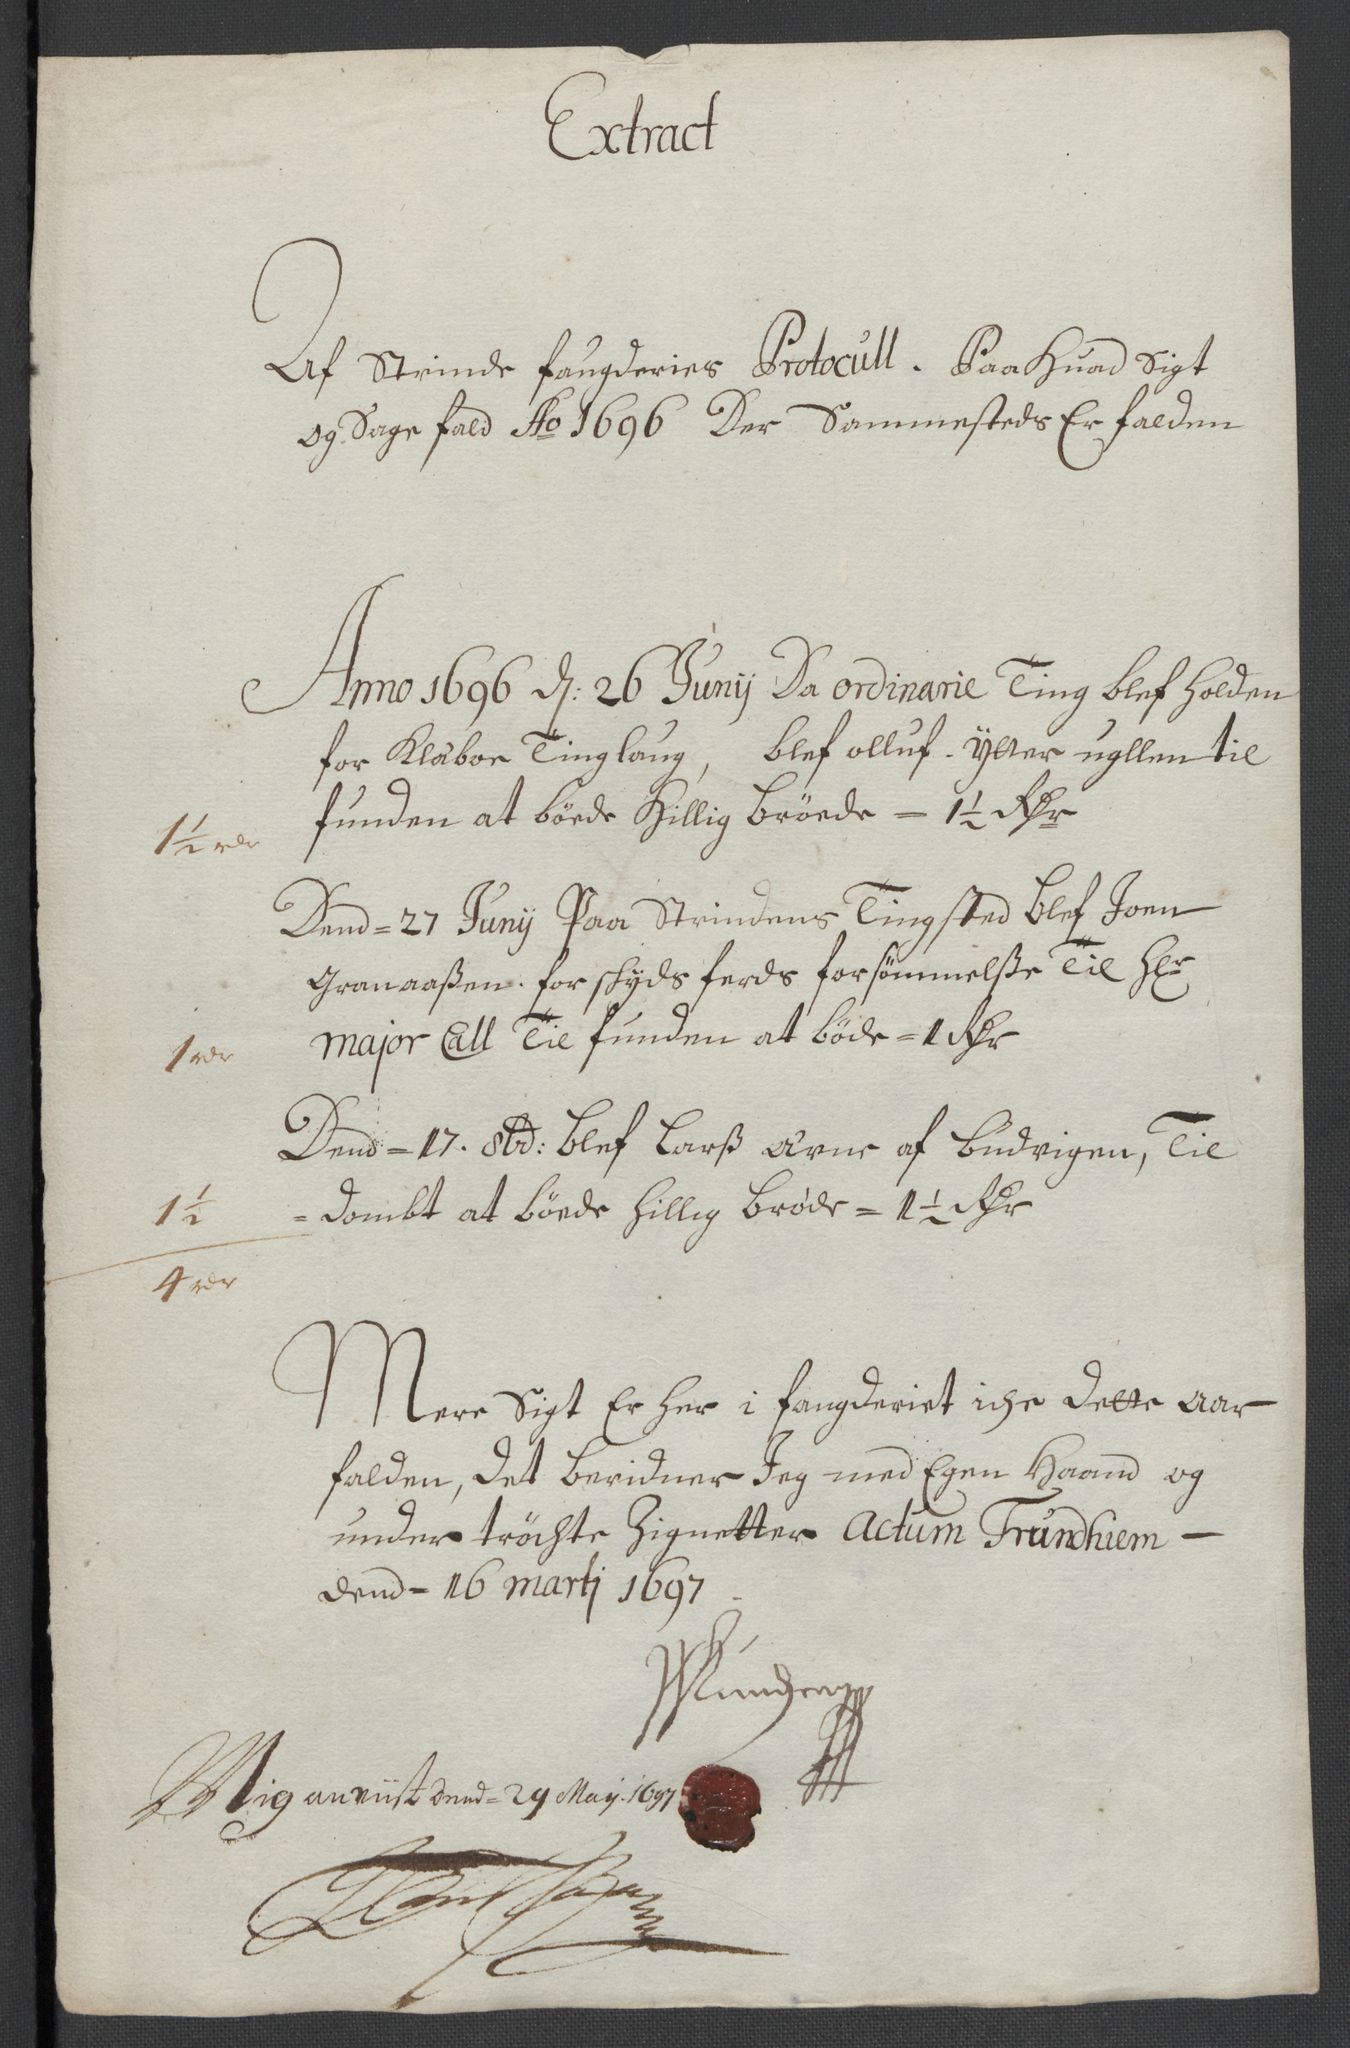 Extract
Af Strinde faugderies Protocull. Paa huad Sigt
og Sage fald Ao 1696 Der Sammesteds Er falden
Anno 1696 d: 26 Junij Da ordinarie Ting blef holden
for Klæboe Tinglaug, blef olluf ytter ugllen til
funden at böede hillig bröede = 1½ Rhr
1½ rdr
Dend = 27 Junij Paa Strindens Tingsted blef Joen
Granaaßen. for skyds ferds forsömmelße Til Hr
major Call Til funden at böde = 1 Rhr
1 rdr
Dend = 17. 8bd: blef Larß Arne af budvigen, Til
= dombt at böede hillig bröde = 1½ Rhr
1½
4 rdr
Mere Sigt Er her i faugderiet iche dette Aar
falden, det bevidner Jeg med Egen Haand og
under tröchte Zignetter Actum Trundhiem
dend = 16 martj 1697
Mig anviist dend = 29 Maij. 1697